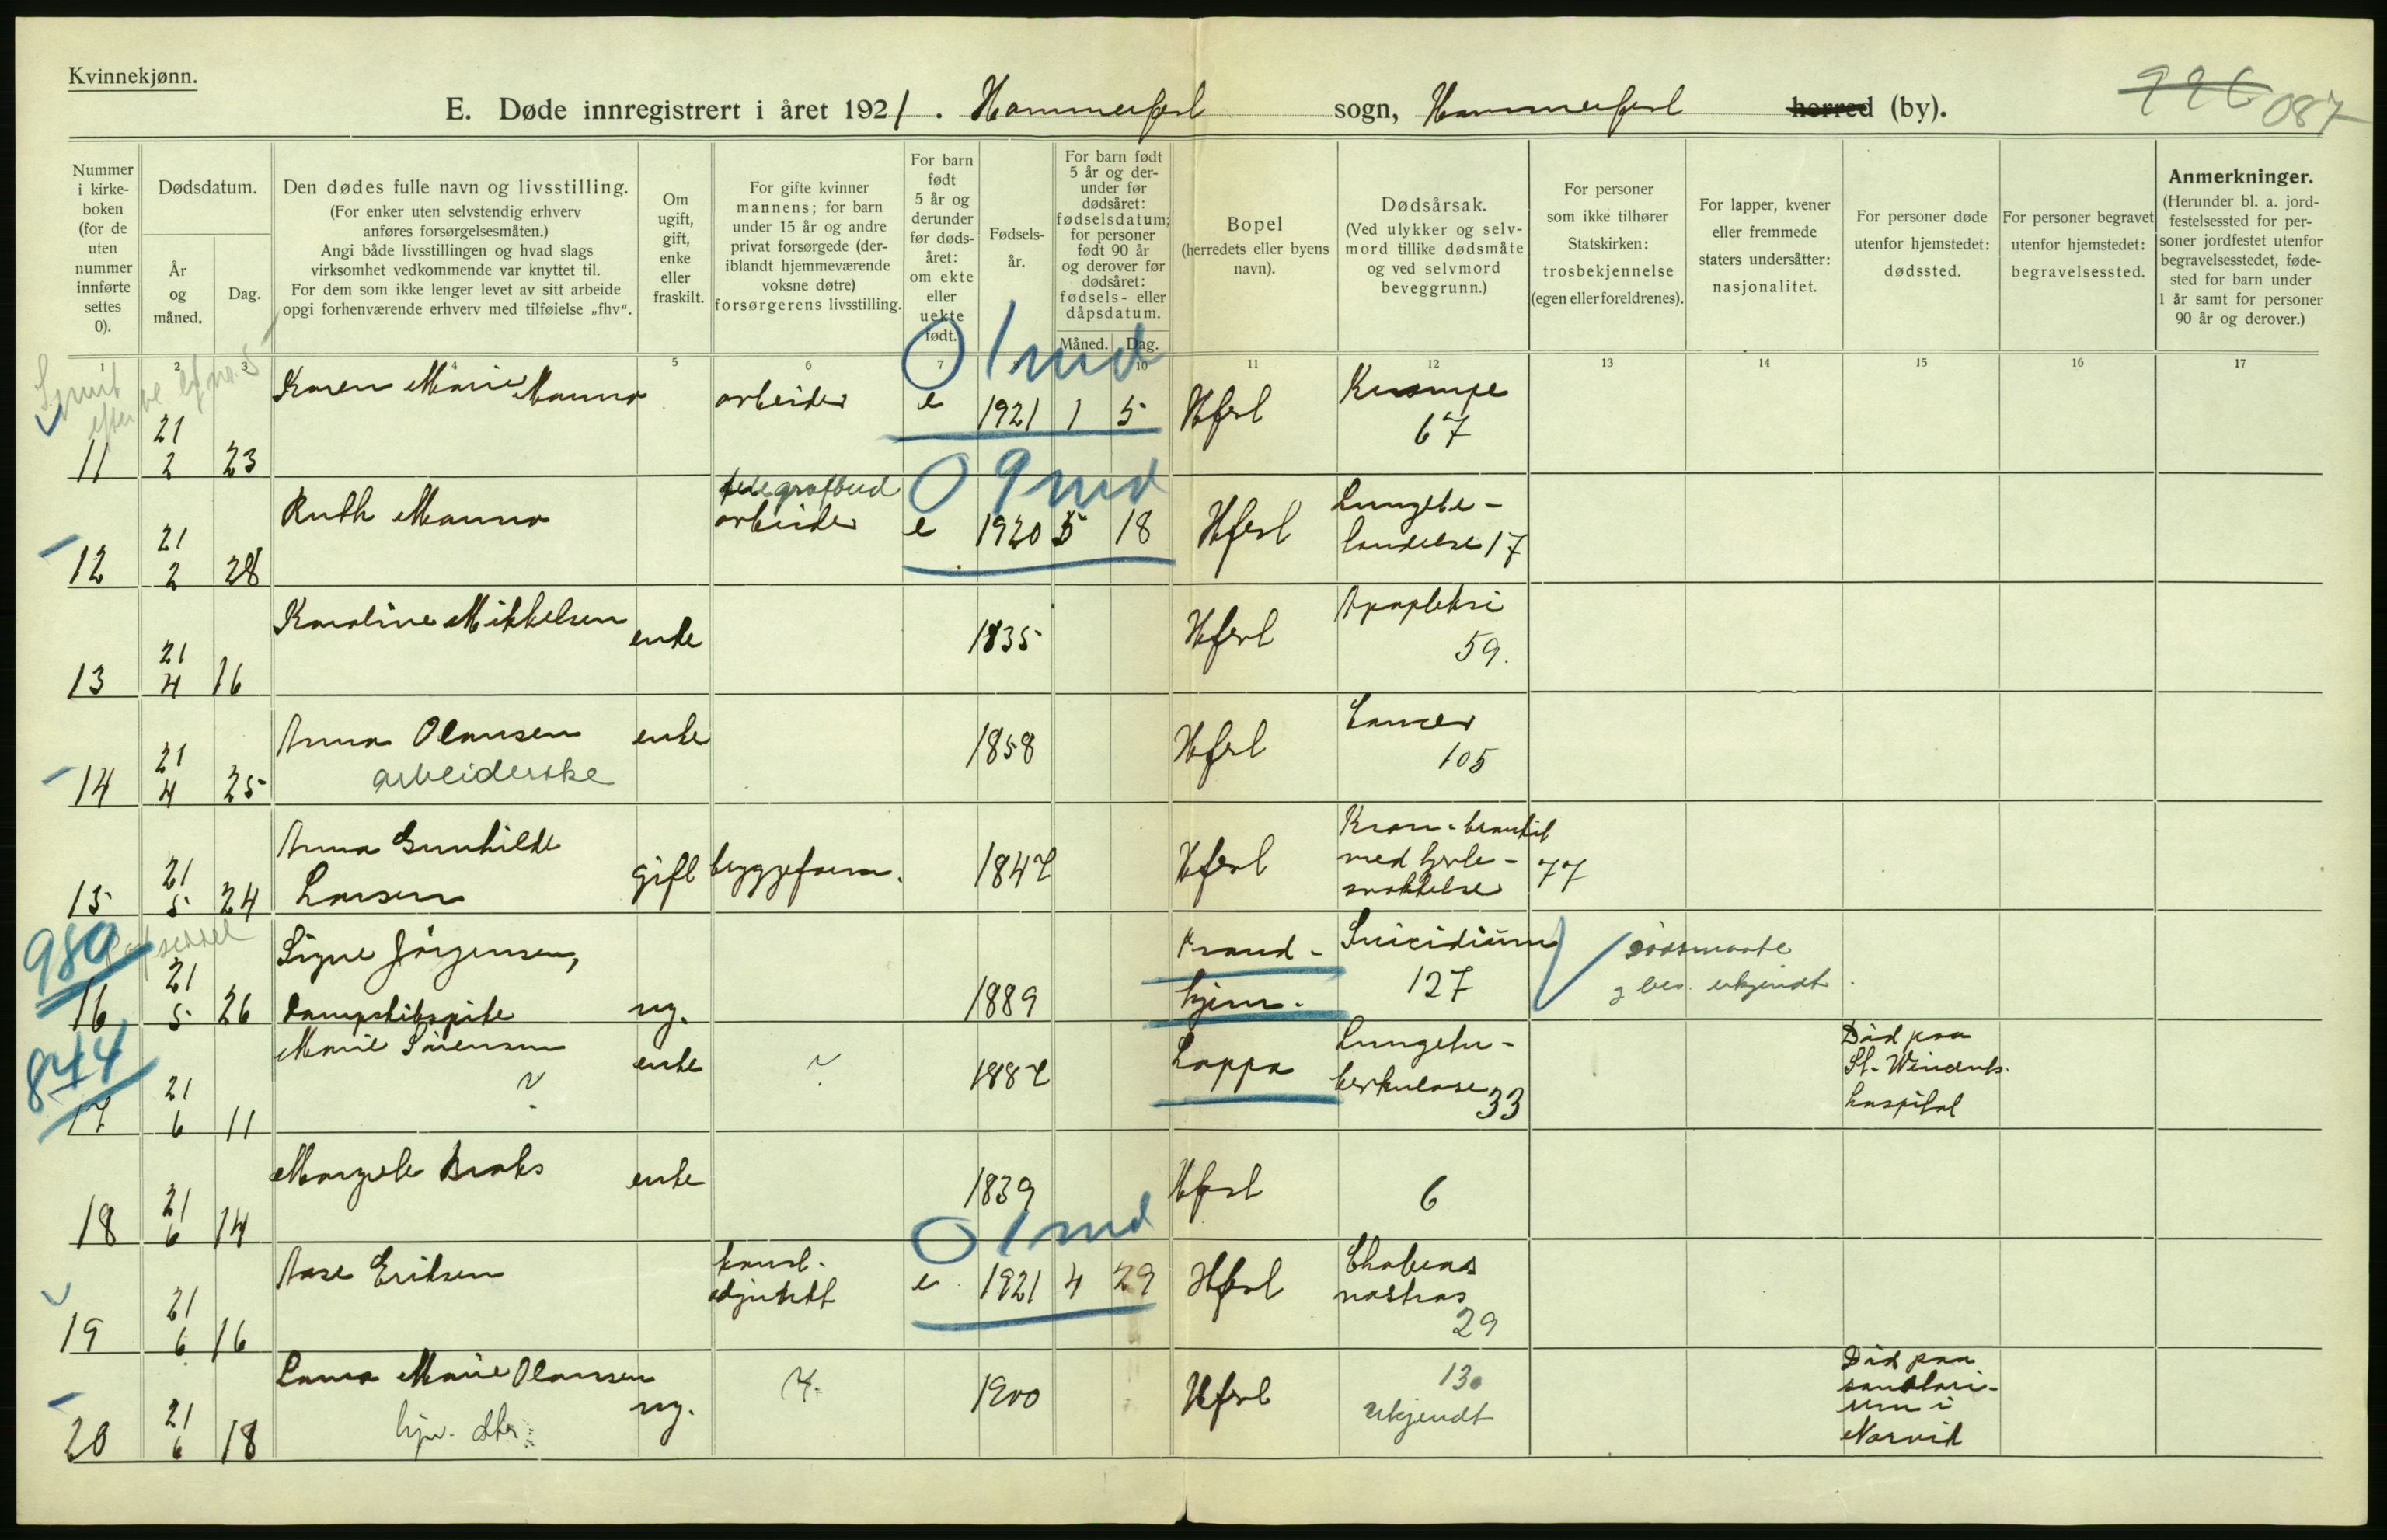 Kvinnekjønn.
E. Døde innregistrert i året 1921. Hammerfest sogn, Hammerfest herred (by).
926 087
Nummer i kirke-boken (for de uten nummer innførte settes 0).
Dødsdatum.
År og måned.
Dag.
Den dødes fulle navn og livsstilling.
(For enker uten selvstendig erhverv anføres forsørgelsesmåten.)
Angi både livsstillingen og hvad slags virksomhet vedkommende var knyttet til.
For dem som ikke lenger levet av sitt arbeide opgi forhenværende erhverv med tilføielse „fhv“.
Om ugift, gift, enke eller fraskilt.
For gifte kvinner mannens; for barn under 15 år og andre privat forsørgede (der-iblandt hjemmeværende voksne døtre) forsørgerens livsstilling.
For barn født 5 år og derunder før døds-året: om ekte eller uekte født.
Fødsels-år.
For barn født 5 år og der-under før dødsåret: fødselsdatum; for personer født 90 år og derover før dødsåret: fødsels- eller dåpsdatum.
Måned. Dag.
Bopel (herredets eller byens navn).
Dødsårsak.
(Ved ulykker og selv-mord tillike dødsmåte og ved selvmord beveggrunn.)
For personer som ikke tilhører Statskirken: trosbekjennelse (egen eller foreldrenes).
For lapper, kvener eller fremmede staters undersåtter: nasjonalitet.
For personer døde utenfor hjemstedet: dødssted.
For personer begravet utenfor hjemstedet: begravelsessted.
Anmerkninger.
(Herunder bl. a. jord-festelsessted for per-soner jordfestet utenfor begravelsesstedet, føde-sted for barn under 1 år samt for personer 90 år og derover.)
1 2 3 4 5 6 7 8 9 10 11 12 13 14 15 16 17
0 1 md
11 21 2 23 Karen Marie Manno arbeider e 1921 1 5 Hfest Krampe 67
0 9 md
12 21 2 28 Ruth Manno telegrafbud arbeider e 1920 5 18 Hfest Lungebe-tændelse 17
13 21 4 16 Karoline Mikkelsen enke 1835 Hfest Apopleksi 59.
14 21 4 25 Anna Olausen arbeiderske enke 1858 Hfest Cancer 105
15 21 5 24 Anna Gunhilde Larsen gift byggeform. 1847 Hfest Kron. bronkit med hjerte-svækkelse 77
980
16 21 5 26 Signe Jörgensen, dampskibspike ug. 1889 Trond-hjem. Suicidium 127 dödsmaate g bev. ukjendt
844
17 21 6 11 Marie Sörensen ? enke ? 1887 Loppa Lungetu-berkulose 33 Död paa St. Vincents. hospital
18 21 6 14 Margrete Braks enke 1839 Hfest 6
0 1 md
19 21 6 16 Aase Eriksen e 1921 4 29 Hfest Cholera nostras 29
20 21 6 18 Laura Marie Olaussen hjv. dtr. ug. ? 1900 Hfest 130 ukjendt Död paa sanatori-um i Narvik